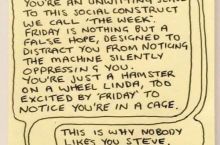 YOU'RE AN UNWITTING SLAVE
TO THIS SOCIAL CONSTRUCT
WE CALL 'THE WEEK'.
FRIDAY IS NOTHING BUT A
FALSE HOPE, DESIGNED TO
DISTRACT YOU FROM NOTICING
THE MACHINE SILENTLY
OPPRESSING YOU.
YOU'RE JUST A HAMSTER
ON A WHEEL LINDA, TOO
EXCITED BY 'FRIDAY' TO
NOTICE YOU'RE IN A CAGE.
THIS IS WHY NOBODY
LIKES YOU STEVE.